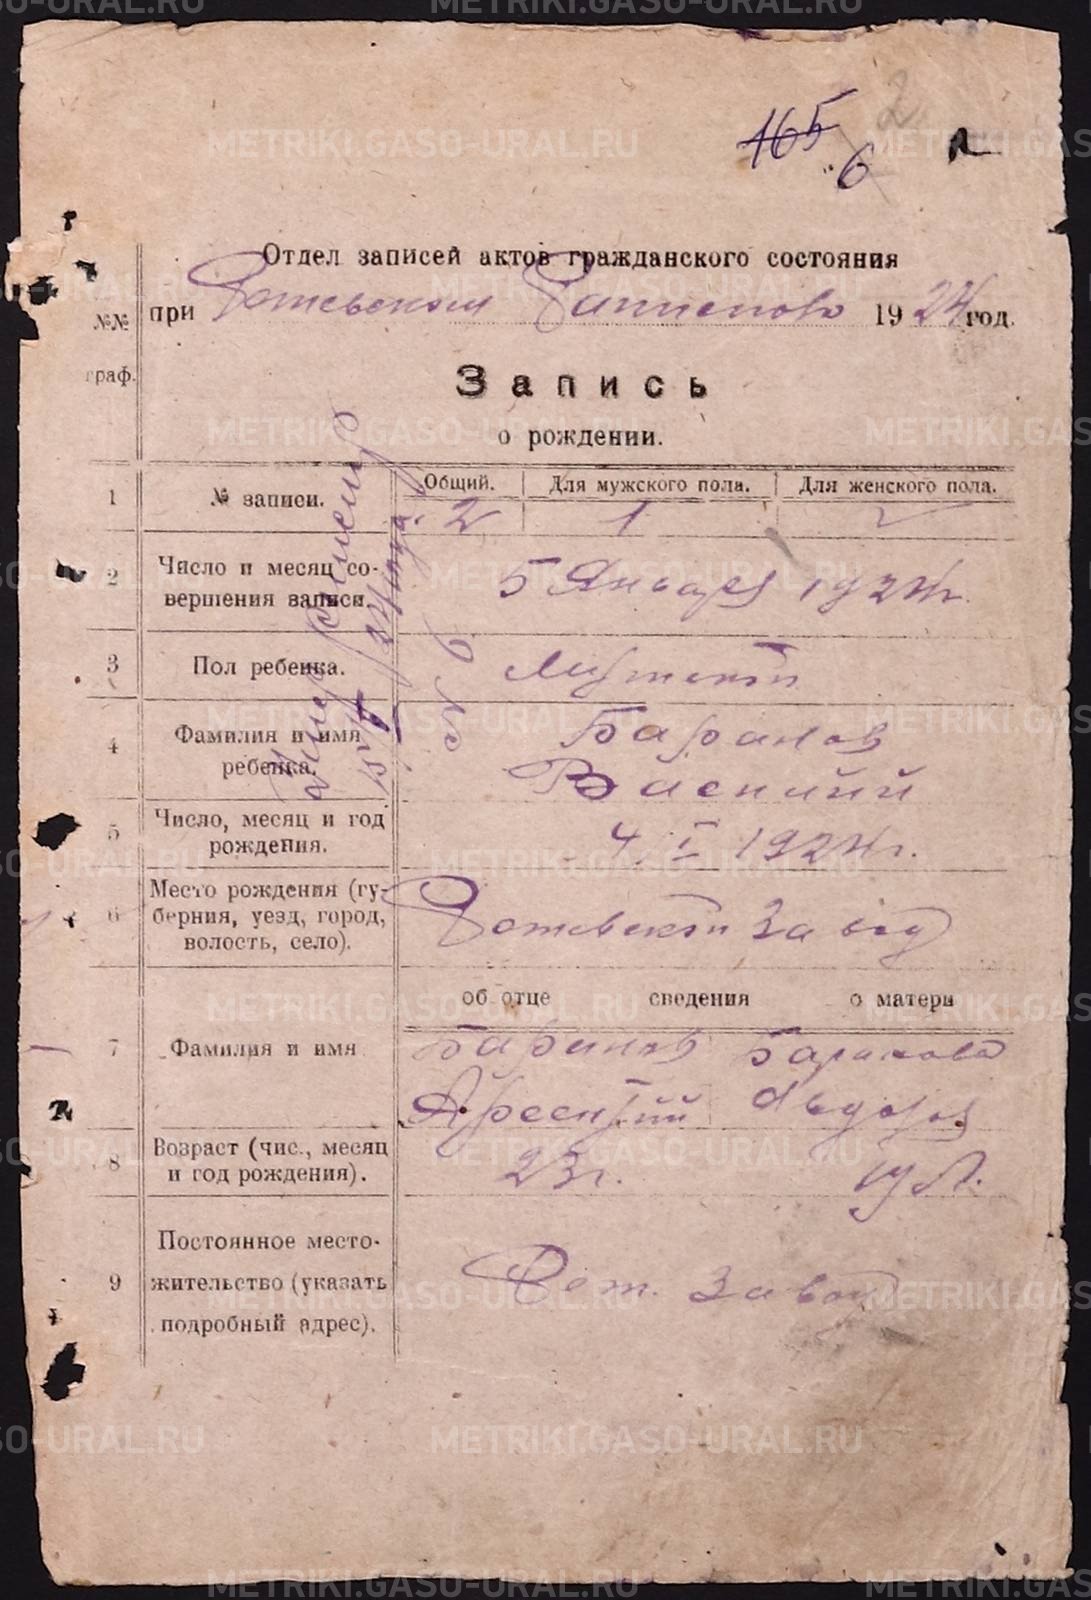 165
6
2
Отдел записей актов гражданского состояния
при Режевском 1924 год.
№№ граф.
Запись
о рождении.
1 № записи. Общий. Для мужского пола. Для женского пола.
2 1
2 Число и месяц совершения записи. 5 Января 1924 г.
3 Пол ребенка. Мужской
4 Фамилия и имя ребенка. Баранов
Василий
5 Число, месяц и год рождения. 4 I 1924 г.
6 Место рождения (губерния, уезд, город, волость, село). Режевской завод
об отце сведения о матери
7 Фамилия и имя Баранов Баранова
Арсентий
8 Возраст (чис., месяц и год рождения). 23 г. 19 л.
9 Постоянное место-
жительство (указать Реж. завод
подробный адрес).
№ 6
METRIKI.GASO-URAL.RU